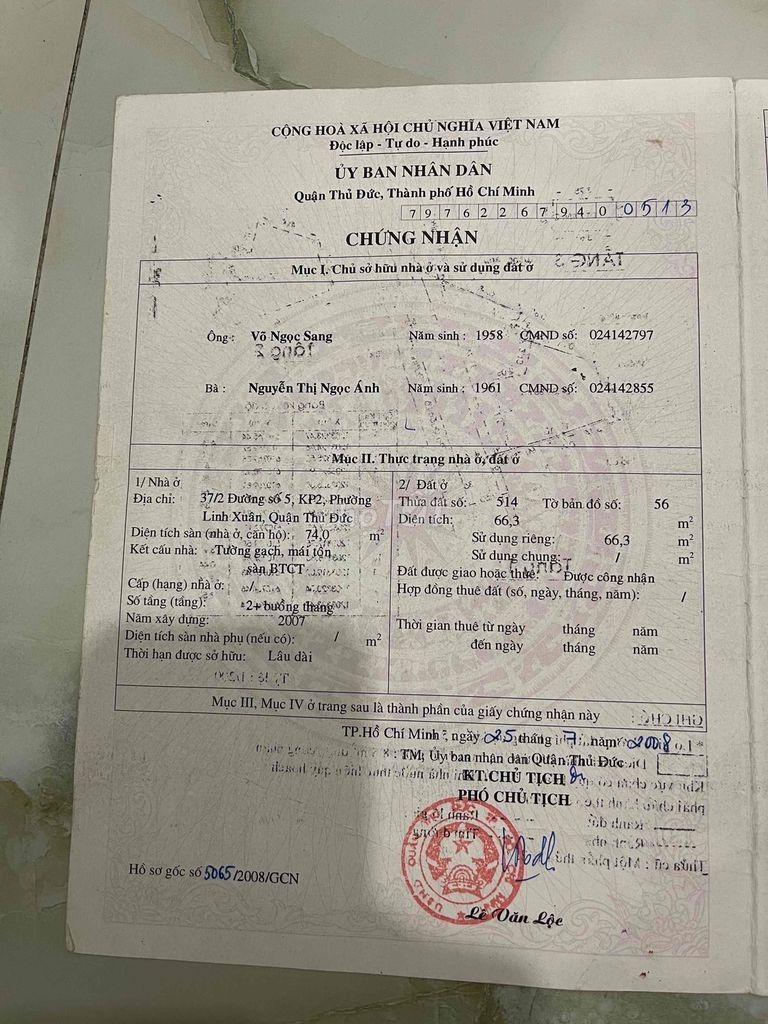 CỘNG HOÀ XÃ HỘI CHỦ NGHĨA VIỆT NAM
Độc lập - Tự do - Hạnh phúc
ỦY BAN NHÂN DÂN
Quận Thủ Đức, Thành phố Hồ Chí Minh
7 9 7 6 2 2 6 7 9 4 0 0 5 1 3
CHỨNG NHẬN
Mục I. Chủ sở hữu nhà ở và sử dụng đất ở
Ông : Võ Ngọc Sang Năm sinh : 1958 CMND số: 024142797
Bà : Nguyễn Thị Ngọc Ánh Năm sinh : 1961 CMND số: 024142855
Mục II. Thực trạng nhà ở, đất ở
1/ Nhà ở
Địa chỉ: 37/2 Đường số 5, KP2, Phường
Linh Xuân, Quận Thủ Đức
Diện tích sàn (nhà ở, căn hộ): 74,0 m²
Kết cấu nhà: Tường gạch, mái tôn,
sàn BTCT
Cấp (hạng) nhà ở: /
Số tầng (tầng): 2+ buồng thang
Năm xây dựng: 2007
Diện tích sàn nhà phụ (nếu có): / m²
Thời hạn được sở hữu: Lâu dài
2/ Đất ở
Thửa đất số: 514 Tờ bản đồ số: 56
Diện tích: 66,3 m²
Sử dụng riêng: 66,3 m²
Sử dụng chung: / m²
Đất được giao hoặc thuê: Được công nhận
Hợp đồng thuê đất (số, ngày, tháng, năm): /
Thời gian thuê từ ngày tháng năm
đến ngày tháng năm
Mục III, Mục IV ở trang sau là thành phần của giấy chứng nhận này
TP.Hồ Chí Minh , ngày 25 tháng 7 năm 2008
TM, Ủy ban nhân dân Quận Thủ Đức
KT.CHỦ TỊCH
PHÓ CHỦ TỊCH
Hồ sơ gốc số 5065/2008/GCN
Lê Văn Lộc